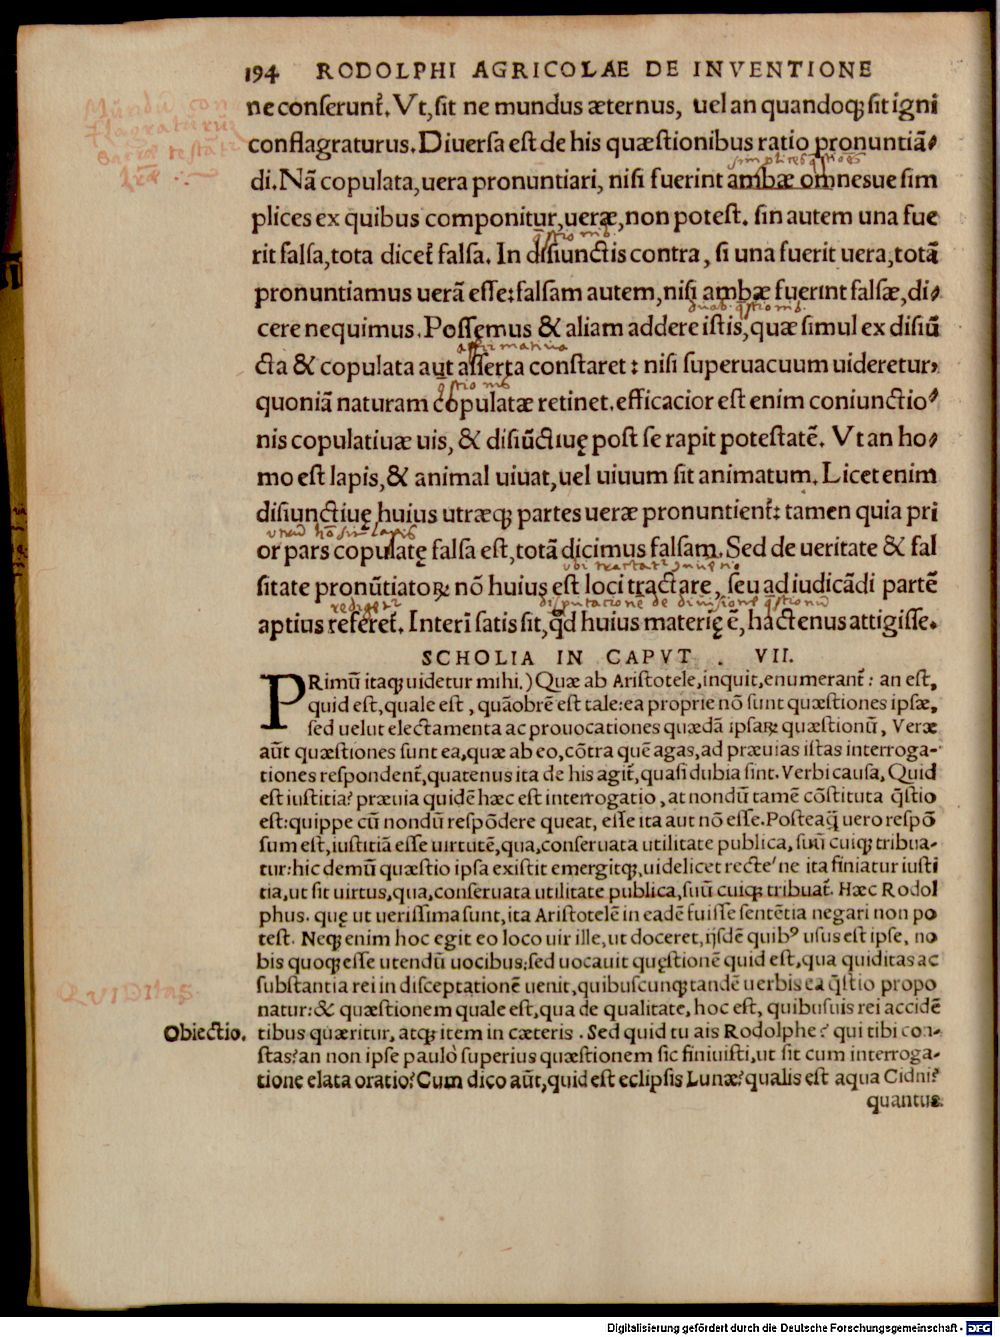 194 RODOLPHI AGRICOLAE DE INVENTIONE
ne conserunt᷑. Vt, sit ne mundus æternus, uel an quandoqꝫ sit igni
conflagraturus. Diuersa est de his quæstionibus ratio pronuntiā⸗
di. Nā copulata, uera pronuntiari, nisi fuerint ambæ omnesue sim
plices ex quibus componitur, ueræ, non potest. sin autem una fue
rit falsa, tota dicet᷑ falsa. In disiunctis contra, si una fuerit uera, totā
pronuntiamus uerā esse: falsam autem, nisi ambæ fuerint falsæ, di⸗
cere nequimus. Possemus & aliam addere istis, quæ simul ex disiū
cta & copulata aut asserta constaret: nisi superuacuum uideretur,
quoniā naturam copulatæ retinet. efficacior est enim coniunctio⸗
nis copulatiuæ uis, & disiūctiuę post se rapit potestatē. Vt an ho⸗
mo est lapis, & animal uiuat, uel uiuum sit animatum. Licet enim
disiunctiuę huius utræqꝫ partes ueræ pronuntient᷑: tamen quia pri
or pars copulatę falsa est, totā dicimus falsam. Sed de ueritate & fal
sitate pronūtiatoꝝ nō huius est loci tractare, seu ad iudicādi partē
aptius referet᷑. Interī satis sit, qd̄ huius materię ē, hactenus attigisse.
SCHOLIA IN CAPVT . VII.
PRimū itaqꝫ uidetur mihi.) Quæ ab Aristotele, inquit, enumerant᷑: an est,
quid est, quale est, quāobrē est tale: ea proprie nō sunt quæstiones ipsæ,
sed uelut electamenta ac prouocationes quædā ipsaꝝ quæstionū, Veræ
aūt quæstiones sunt ea, quæ ab eo, cōtra quē agas, ad præuias istas interroga-
tiones respondent᷑, quatenus ita de his agit᷑, quasi dubia sint. Verbi causa, Quid
est iustitia? præuia quidē hæc est interrogatio, at nondū tamē cōstituta q̄stio
est: quippe cū nondū respōdere queat, esse ita aut nō esse. Posteaq̄ uero respō
sum est, iustitiā esse uirtutē, qua, conseruata utilitate publica, suū cuiqꝫ tribua-
tur: hic demū quæstio ipsa existit emergitqꝫ, uidelicet recte'ne ita finiatur iusti
tia, ut sit uirtus, qua, conseruata utilitate publica, suū cuiqꝫ tribuat᷑. Hæc Rodol
phus. quę ut uerissima sunt, ita Aristotelē in eadē fuisse sentētia negari non po
test. Neqꝫ enim hoc egit eo loco uir ille, ut doceret, ijsdē quibꝰ usus est ipse, no
bis quoqꝫ esse utendū uocibus: sed uocauit quęstionē quid est, qua quiditas ac
substantia rei in disceptationē uenit, quibuscunqꝫ tandē uerbis ea q̄stio propo
natur: & quæstionem quale est, qua de qualitate, hoc est, quibusuis rei accidē
Obiectio. tibus quæritur, atqꝫ item in cæteris. Sed quid tu ais Rodolphe? qui tibi con-
stas? an non ipse paulò superius quæstionem sic finiuisti, ut sit cum interroga-
tione elata oratio? Cum dico aūt, quid est eclipsis Lunæ? qualis est aqua Cidni?
quantus
QVIDItas
Digitalisierung gefördert durch die Deutsche Forschungsgemeinschaft - DFG